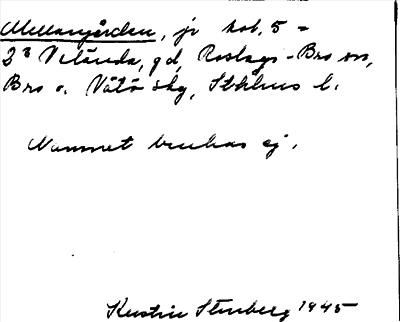 Mellangården, jr kol. 5 =
2³ Veländа, gd, Roslags-Bro sn,
Bro o. Vätö skg, Sthlms l.
Namnet brukas ej.
Kerstin Stenberg 1945